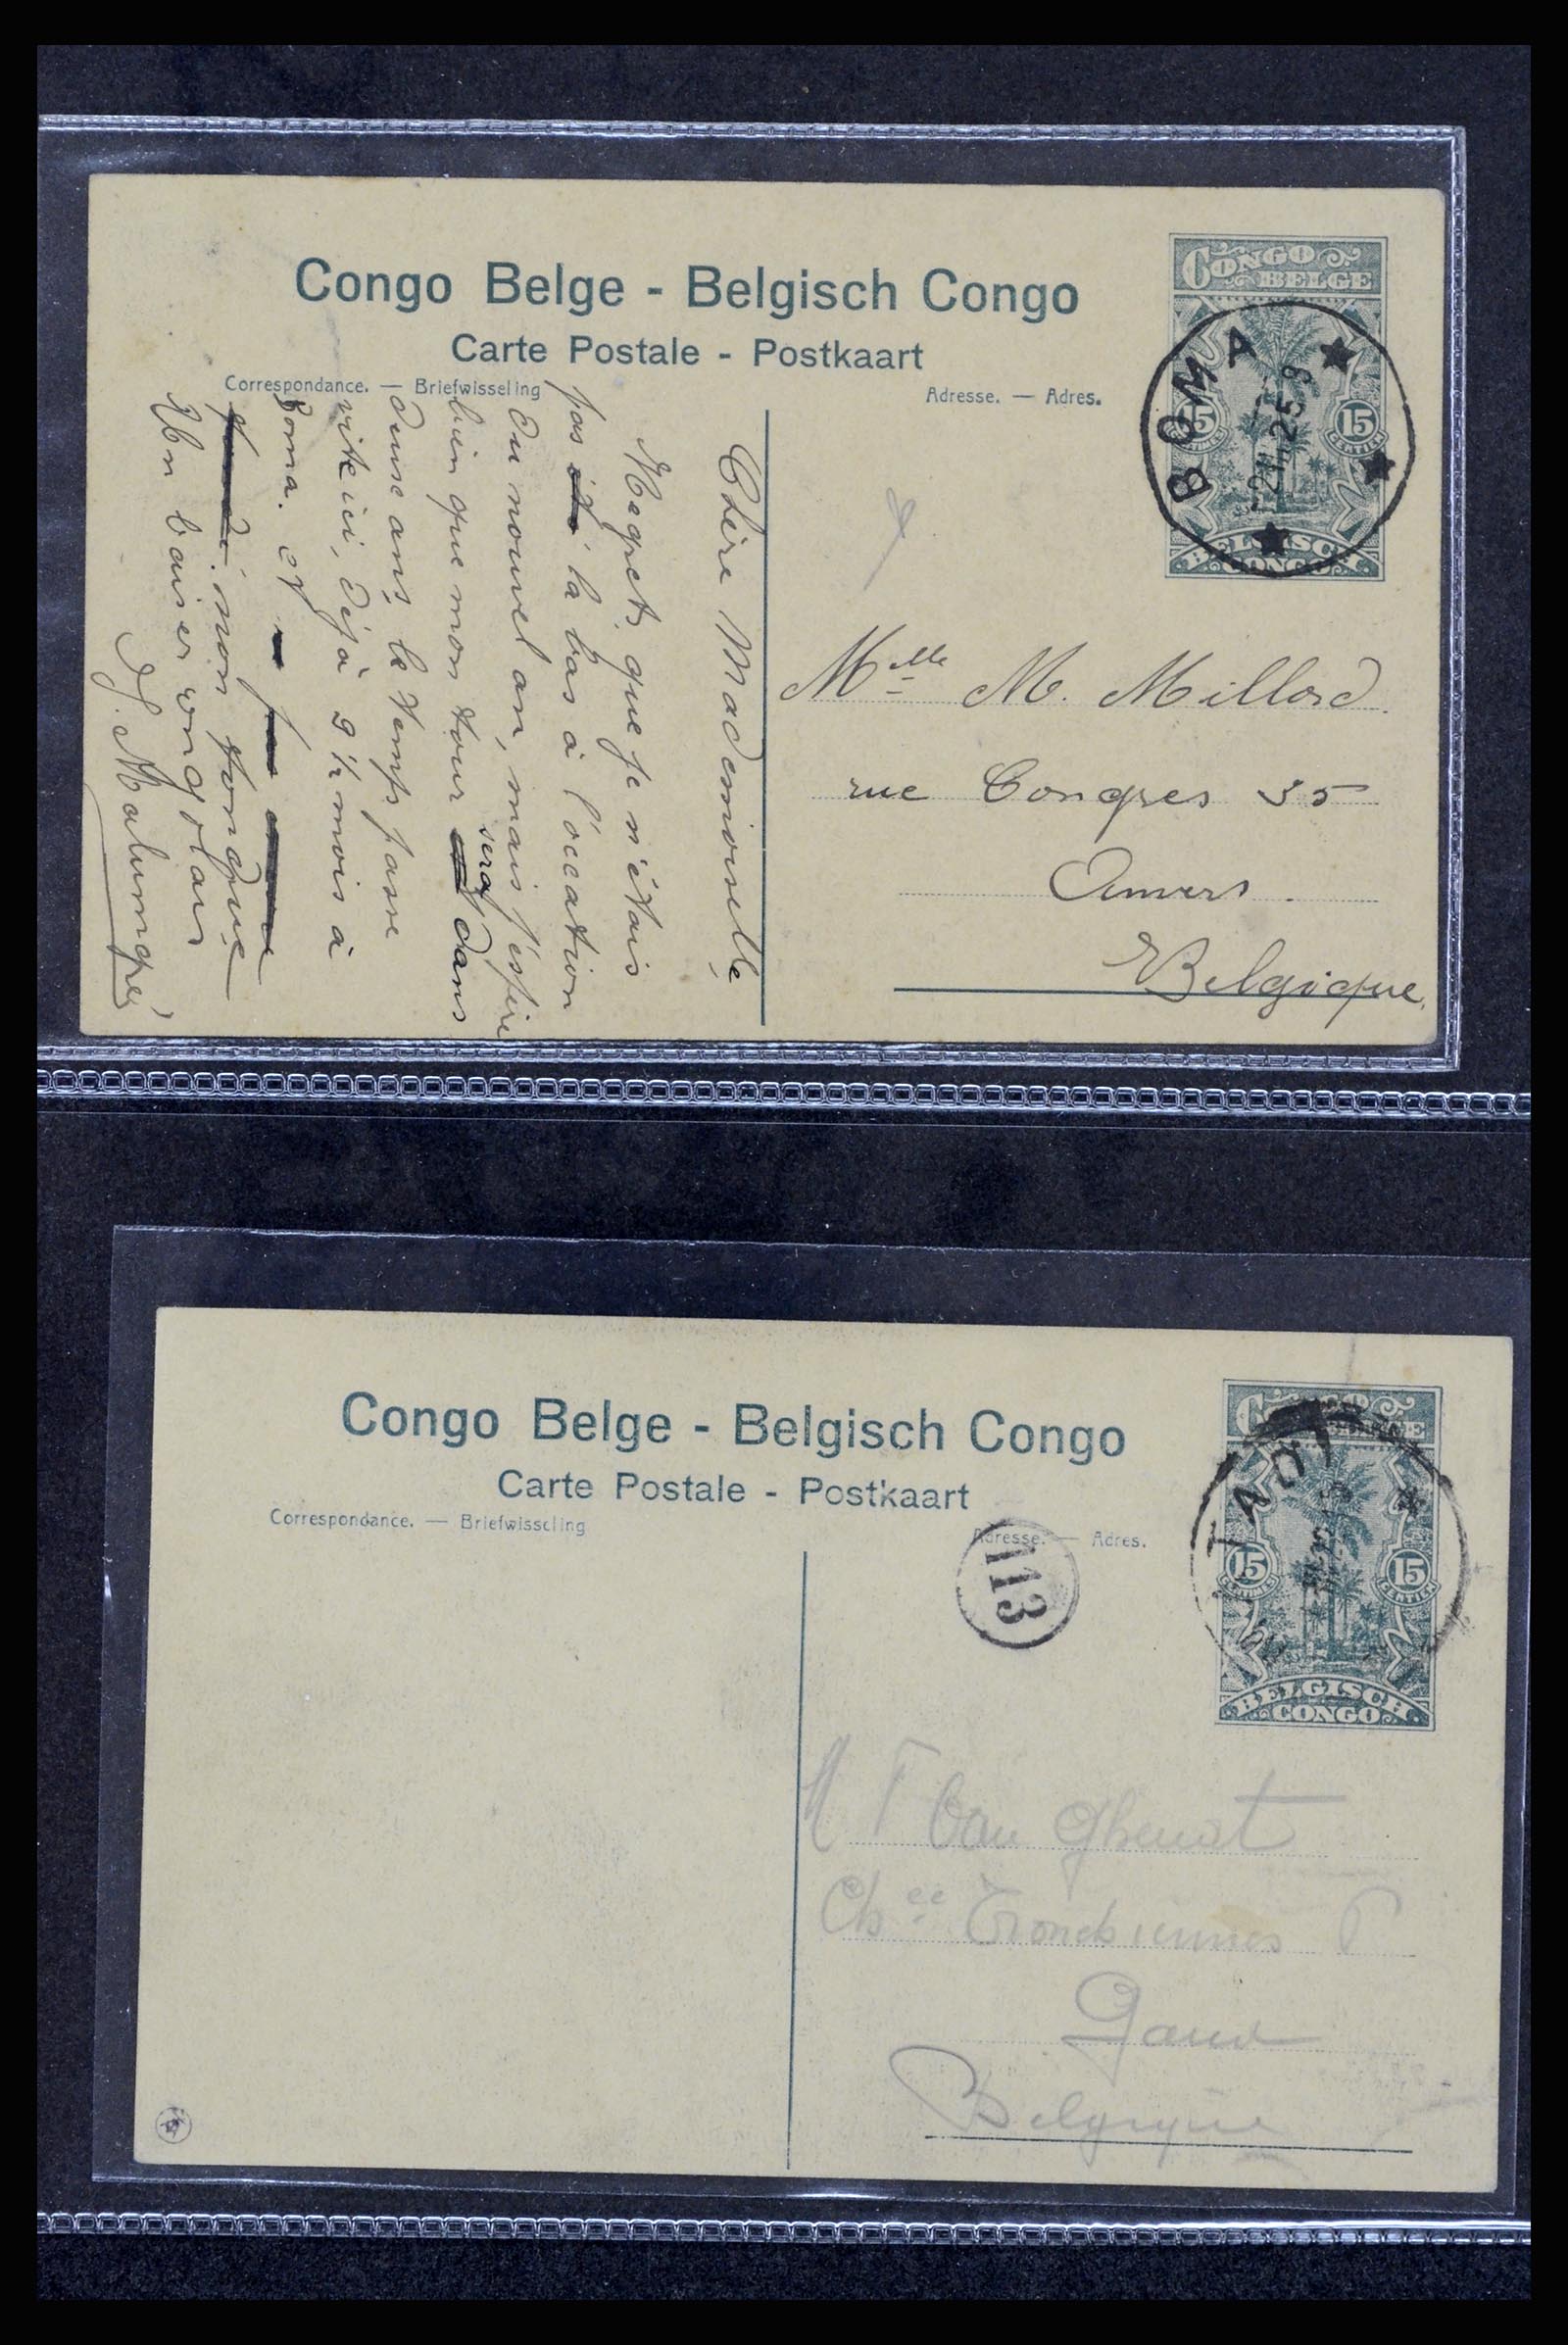 Congo Belge - Belgisch Congo
Carte Postale - Postkaart
Correspondance. — Briefwisseling
Adresse. — Adres.
CONGO
BELGE
15
CENTIMES
15
CENTIEM
BELGISCH
CONGO
BOMA
Chère Mademoiselle
Regrets que je n'étais
pas là bas à l'occation
du nouvel an, mais j'espère
bien que mon tour sera dans
ans, le temps passe
vite ici, déjà 9½ mois à
Boma. et
mon
Un baiser
Malumgré
Mlle M. Millord.
rue Congres 35
Anvers.
Belgique.
Congo Belge - Belgisch Congo
Carte Postale - Postkaart
Correspondance. — Briefwisseling
Adresse. — Adres.
113
15
CENTIMES
15
CENTIEM
BELGISCH
CONGO
M F Van
Chée Tronchiennes
Gand
Belgique